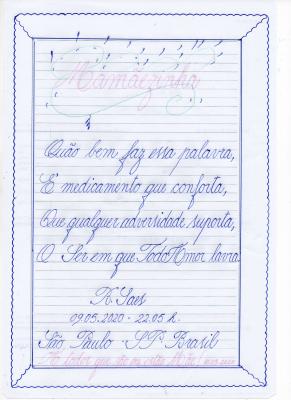 Mamãezinha
Quão bem faz essa palavra,
É medicamento que conforta,
Que qualquer adversidade suporta,
O Ser em que Todo Amor lavra.
R. Saes
09.05.2020 - 22.05 h.
São Paulo - SP. Brasil
A todos que são ou